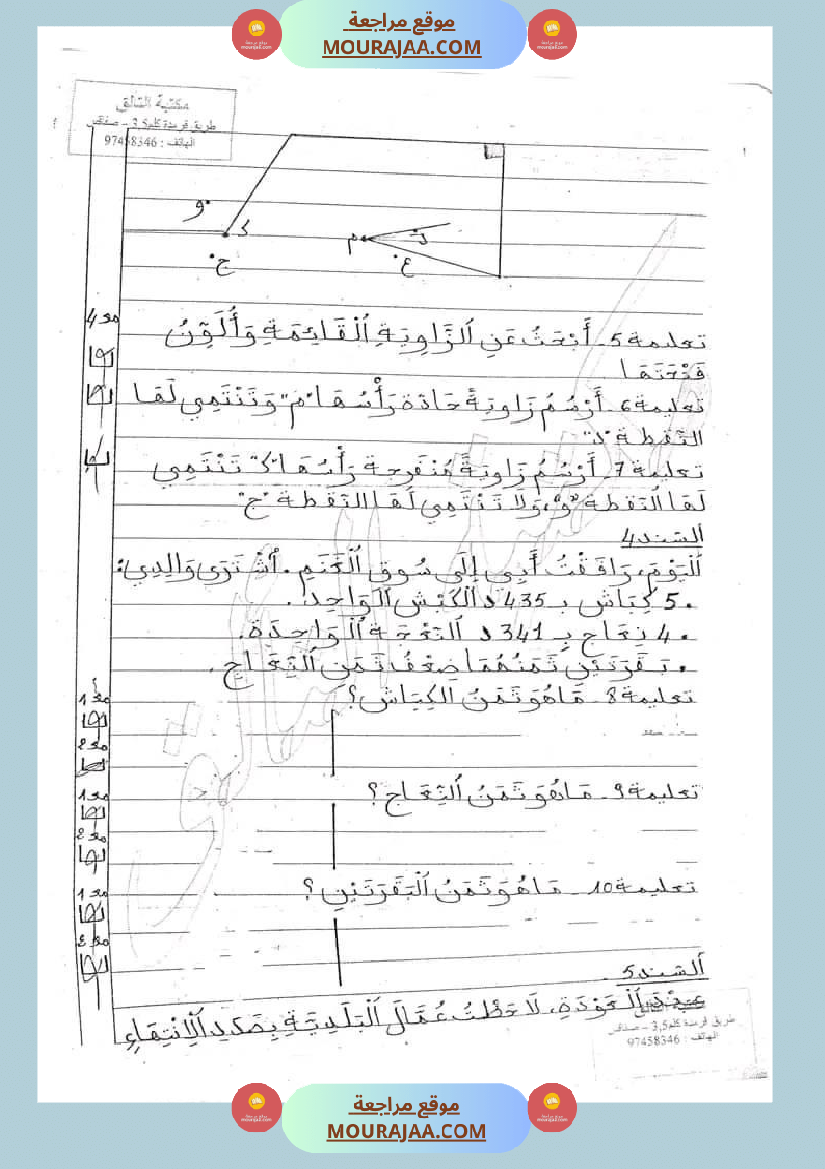 موقع مراجعة
MOURAJAA.COM
مكتبة التألق
طريق قرمدة كلم 3,5 - صفاقس
الهاتف : 97458346
و
ك
م
ع
ج
مع4
تعليمة 5 ـ أَبْحَثُ عَنِ ٱلزَّاوِيَةِ ٱلْقَائِمَةِ وَأُلَوِّنُ
فَتْحَتَهَا
تعليمة 6 ـ أَرْسُمُ زَاوِيَةً حَادَة رَأْسُهَا "م" وَتَنْتَمِي لَهَا
النّقطة
تعليمة 7 ـ أَرْسُمُ زَاوِيَةً مُنْفَرِجة رَأْسُهَا "ك" تَنْتَمِي
لَهَا ٱلنّقطة "و"، وَلَا تَنْتَمِي لَهَا النّقطة "ج"
ٱلسّند 4
ٱلْيَوْمَ، رَافَقْتُ أَبِي إِلَى سُوقِ ٱلْغَنَمِ. ٱشْتَرَى وَالِدِي:
• 5 كِبَاش بِـ 435 د ٱلْكَبْش ٱلْوَاحِد.
• 4 نِعَاج بِـ 341 د ٱلنّعْجَة ٱلْوَاحِدَة.
• بَقَرَتَيْنِ ثَمَنُهُمَا ضِعْفُ ثَمَنِ ٱلنِّعَاجِ.
مع1أ
تعليمة 8 ـ مَا هُوَ ثَمَنُ الكِبَاش؟
مع2
مع1
تعليمة 9 ـ مَا هُوَ ثَمَنُ ٱلنِّعَاج؟
مع2
مع1
تعليمة 10 ـ مَا هُوَ ثَمَنُ ٱلْبَقَرَتَيْنِ؟
مع2
ٱلسّند 5
عِنْدَ ٱلْعَوْدَةِ، لَاحَظْتُ عُمَّالَ ٱلْبَلَدِيَّةِ بِصَدَدِ ٱلِٱنْتِهَاءِ
طريق قرمدة كلم 3,5 - صفاقس
الهاتف : 97458346
موقع مراجعة
MOURAJAA.COM